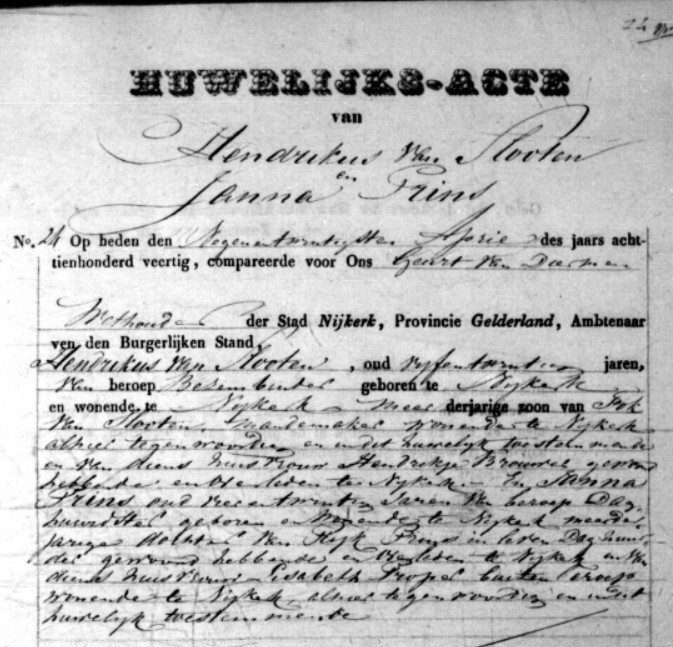 HUWELIJKS-ACTE
van
Hendrikus van Slooten
en
Janna Prins
No. 24 Op heden den Negenentwintigsten April des jaars acht-
tienhonderd veertig, compareerde voor Ons Geurt van Dermen
Wethouder der Stad Nijkerk, Provincie Gelderland, Ambtenaar
ven den Burgerlijken Stand,
Hendrikus van Slooten, oud vyfentwintig jaren,
van beroep Besembinder geboren te Nijkerk
en wonende te Nijkerk meerderjarige zoon van
van Slooten, mandemaker wonende te Nijkerk
alhier tegenwoordig en in dit huwelyk toestemmende
en van diens huisvrouw Hendrikje Brouwer gewoond
hebbende en overleden te Nijkerk. En Janna
Prins oud jaren van beroep Dag-
huurdster geboren en wonende te Nijkerk meerder-
jarige dochter van Prins in leven Daghuur-
der gewoond hebbende en overleden te Nijkerk en van
diens huisvrouw Lisabeth buiten beroep
wonende te Nijkerk, alhier tegenwoordig en in dit
huwelyk toestemmende